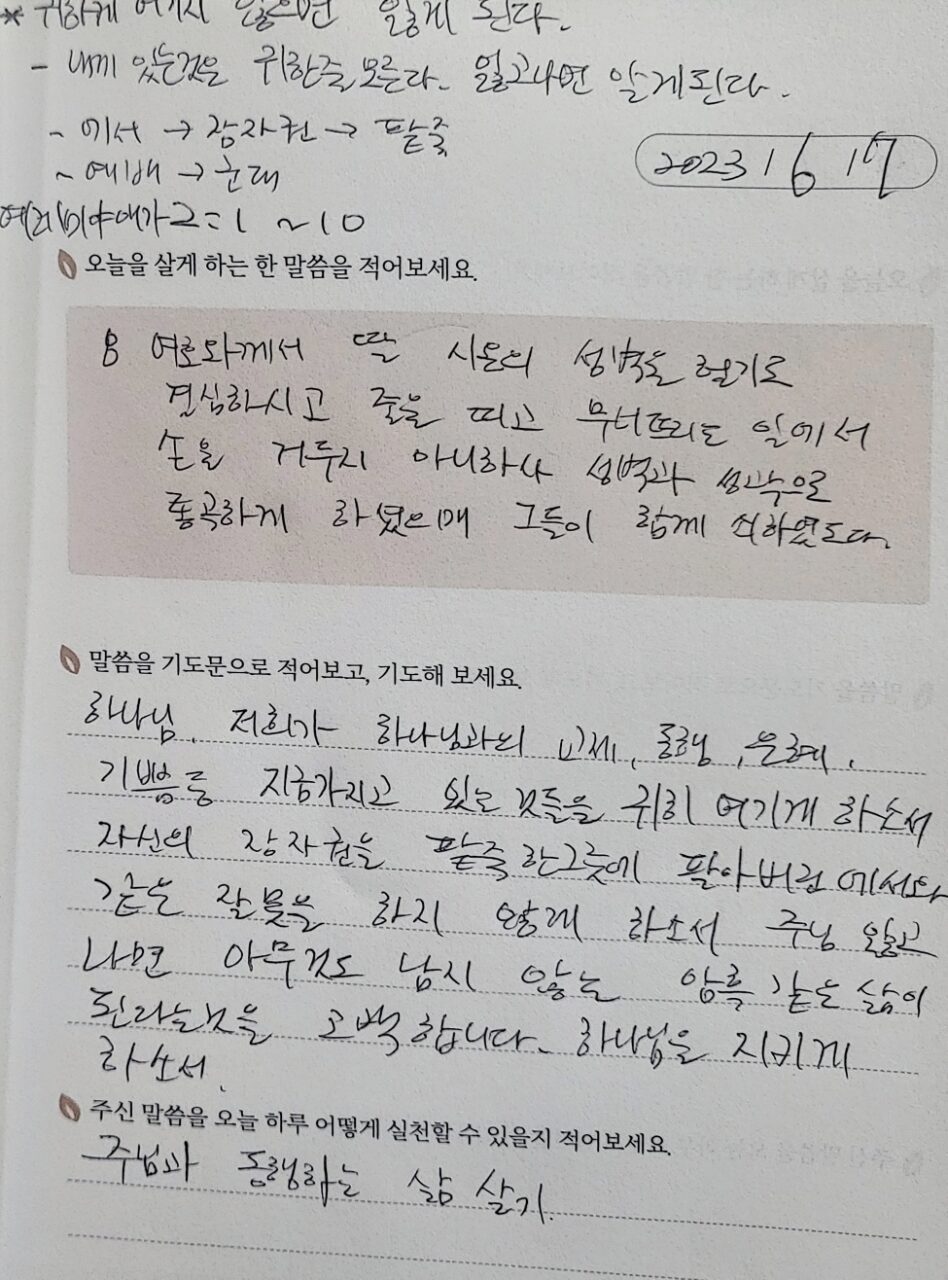 * 귀하게 여기지 않으면 잃게 된다.
- 내게 있는것은 귀한줄 모른다. 잃고나면 알게된다.
~ 에서 → 장자권 → 팥죽
~ 예배 → 군대
2023 / 6 17
예레미야애가 2:1 ~10
오늘을 살게 하는 한 말씀을 적어보세요.
8 여호와께서 딸 시온의 성벽을 헐기로
결심하시고 줄을 띠고 무너뜨리는 일에서
손을 거두지 아니하사 성벽과 성곽으로
통곡하게 하셨으매 그들이 함께 쇠하였도다.
말씀을 기도문으로 적어보고, 기도해 보세요.
하나님. 저희가 하나님과의 교제, 동행, 은혜,
기쁨등 지금가지고 있는 것들을 귀히 여기게 하소서
자신의 장자권을 팥죽한그릇에 팔아버린 에서와
같은 잘못을 하지 않게 하소서 주님 잃고
나면 아무것도 남지 않는 암흑 같은 삶이
된라는것을 고백합니다. 하나님을 지키게
하소서.
주신 말씀을 오늘 하루 어떻게 실천할 수 있을지 적어보세요.
주님과 동행하는 삶 살기.